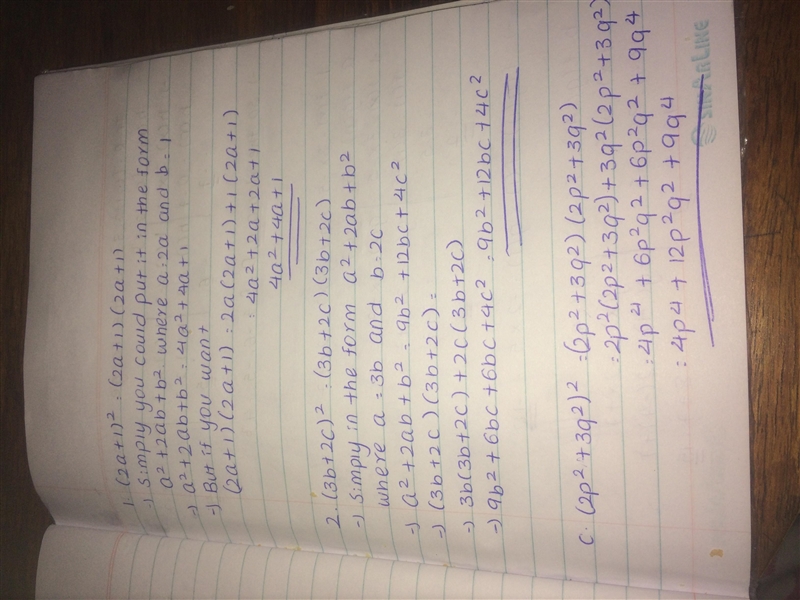 1. (2a+1)² : (2a+1)(2a+1)
-) Simply you could put it in the form
a²+2ab+b² where a:2a and b:1
-) a²+2ab+b² : 4a²+4a+1
-) But if you want
(2a+1)(2a+1) : 2a(2a+1)+1(2a+1)
: 4a²+2a+2a+1
4a²+4a+1
2. (3b+2c)² : (3b+2c)(3b+2c)
-) Simply in the form a²+2ab+b²
where a = 3b and b:2c
-) a²+2ab+b² : 9b²+12bc+4c²
-) (3b+2c)(3b+2c) :
-) 3b(3b+2c)+2c(3b+2c)
-) 9b²+6bc+6bc+4c² : 9b²+12bc+4c²
C. (2p²+3q²)² : (2p²+3q²)(2p²+3q²)
: 2p²(2p²+3q²)+3q²(2p²+3q²)
: 4p⁴+6p²q²+6p²q²+9q⁴
: 4p⁴+12p²q²+9q⁴
SINARLINE